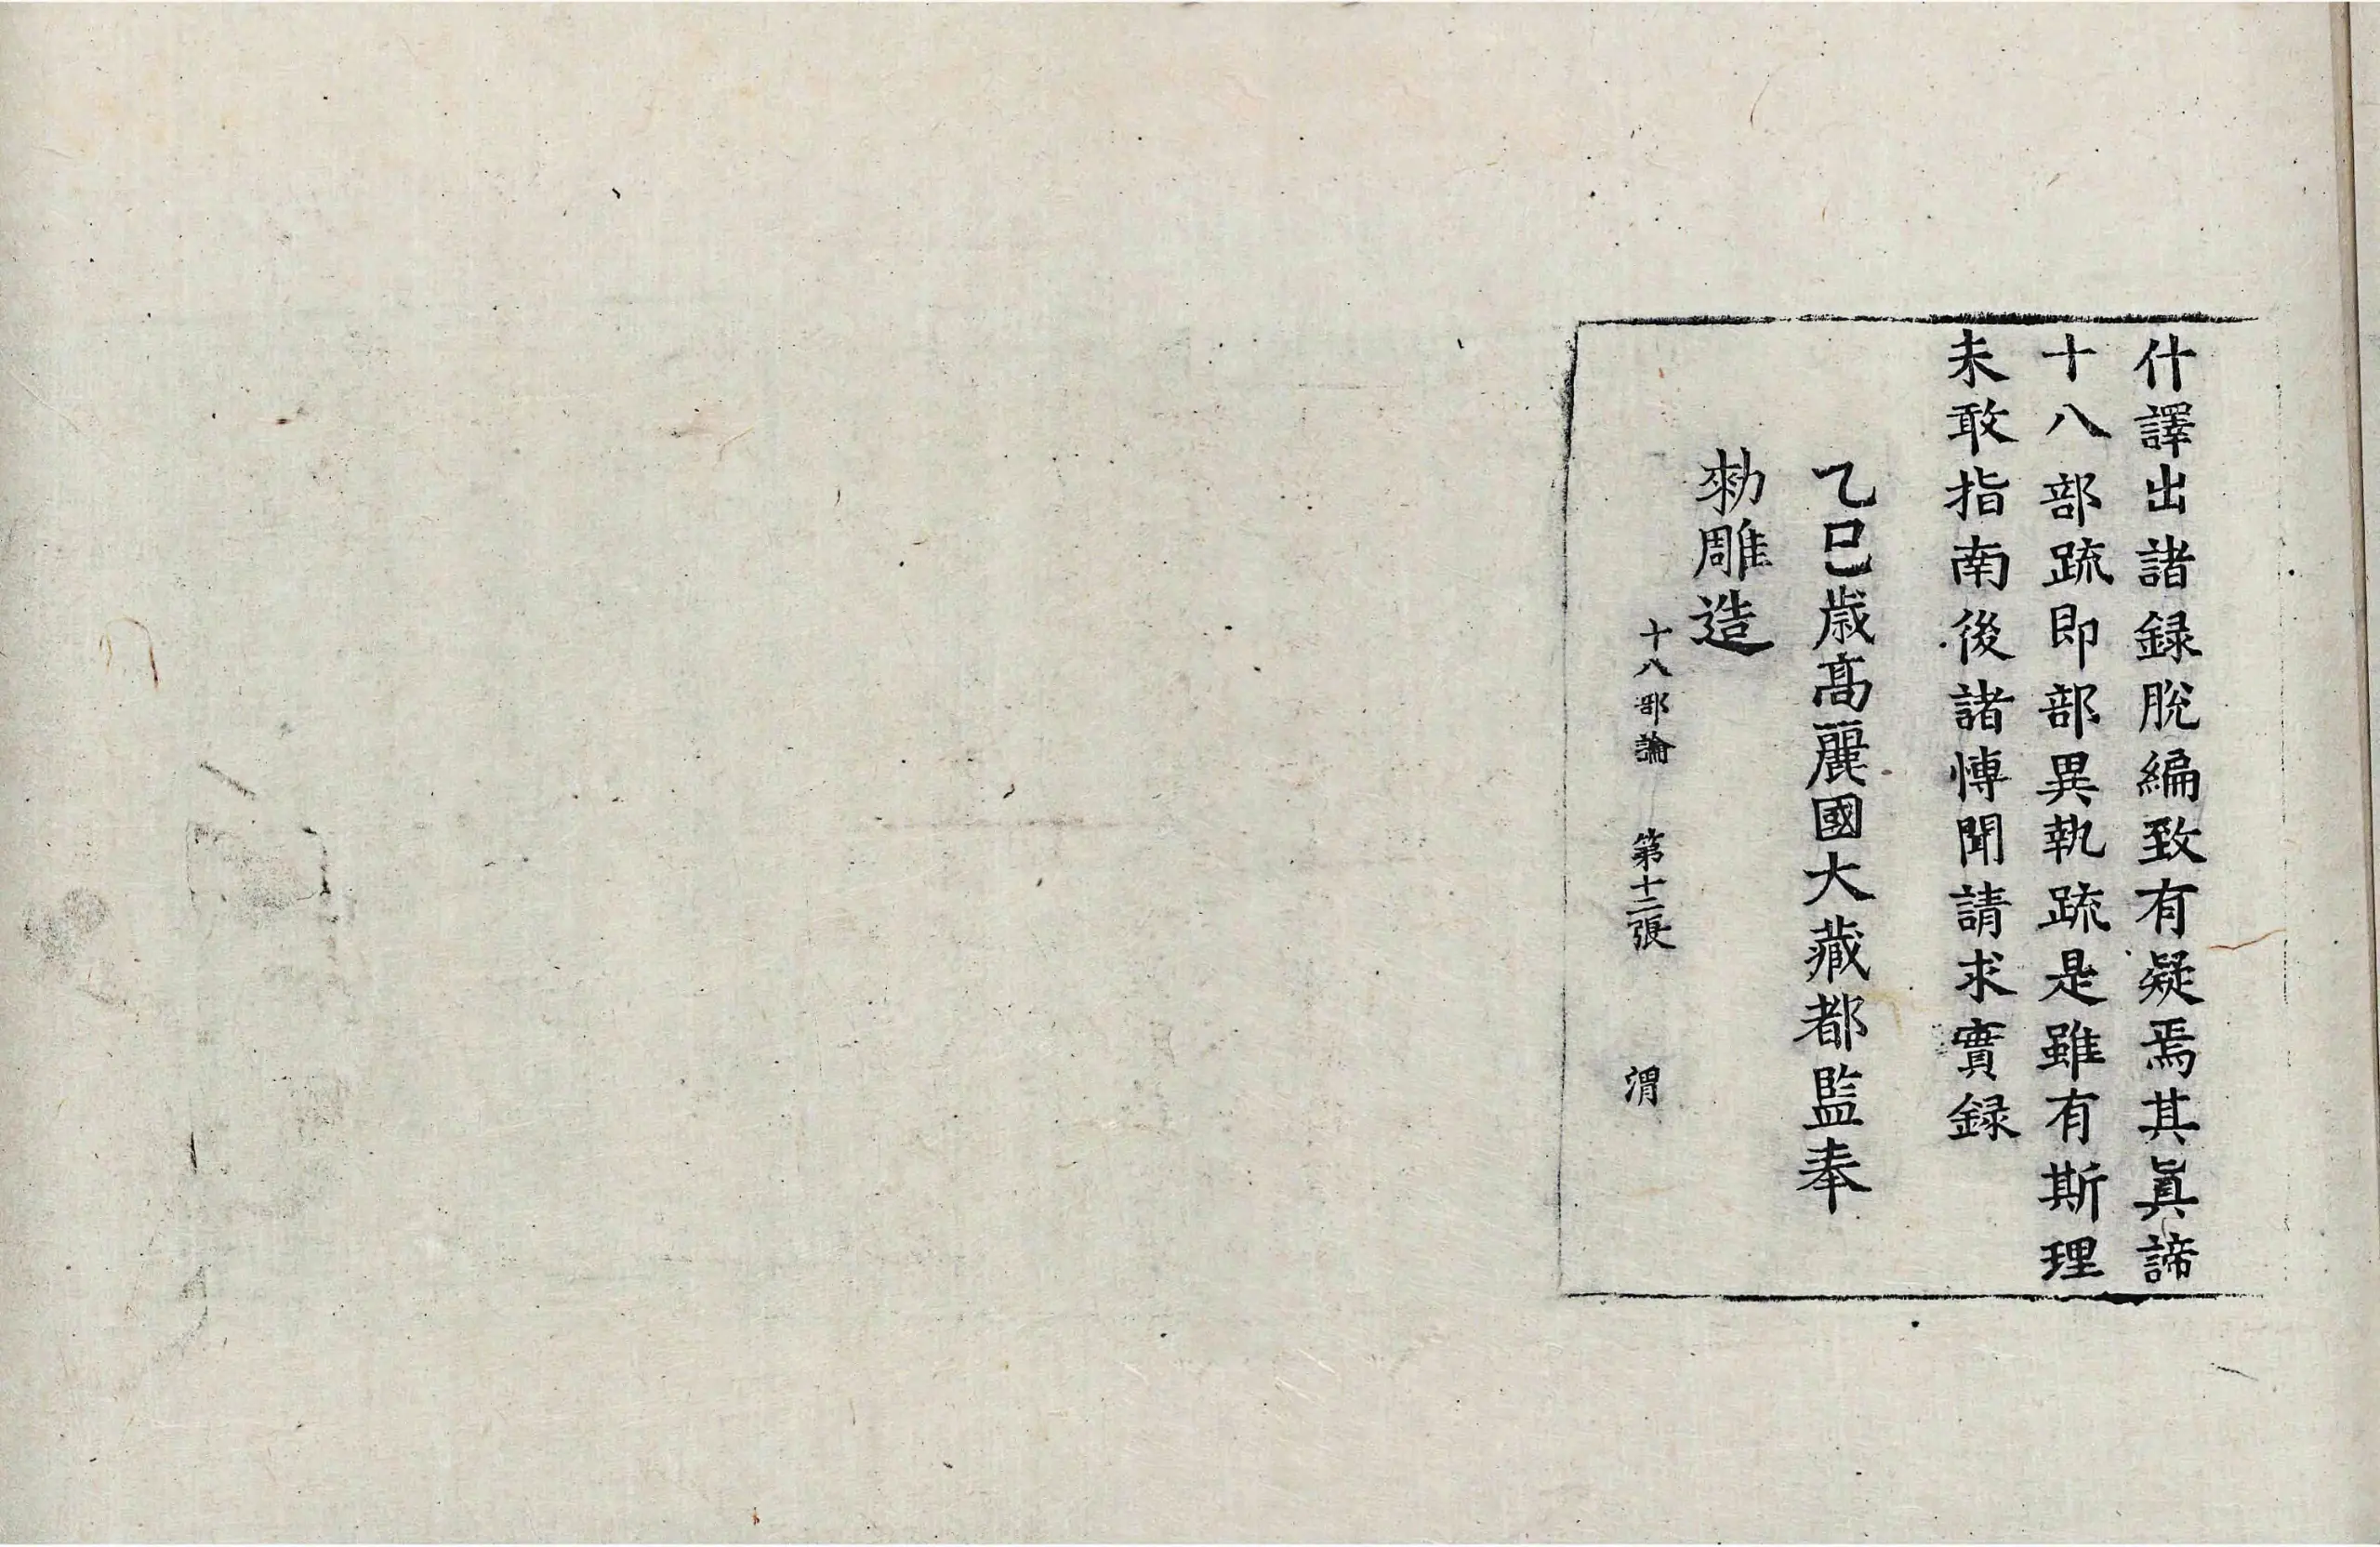 什譯出諸録脫編致有疑焉其眞諦
十八部䟽即部異執䟽是雖有斯理
未敢指南後諸愽聞請求實録
乙巳歳髙麗國大藏都監奉
勑雕造
十八部論 第十二張 渭